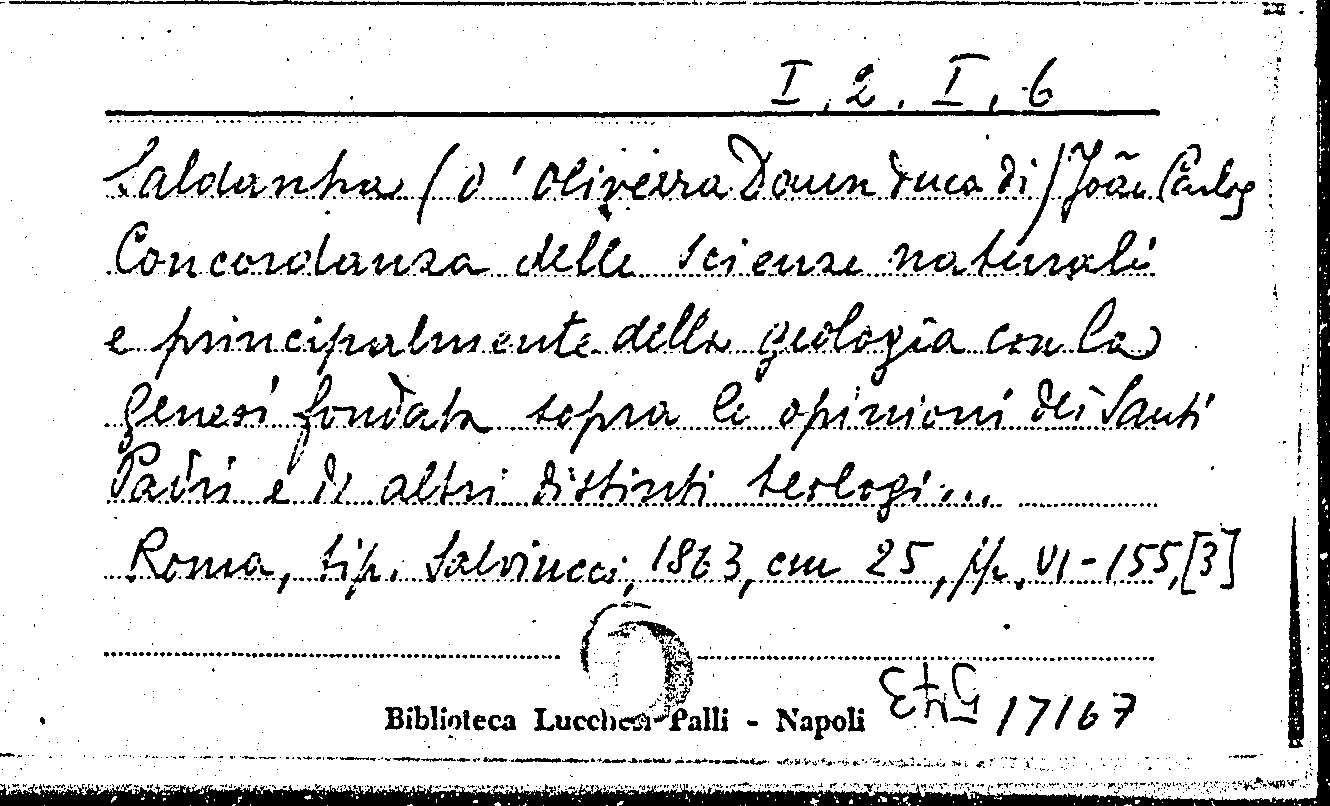 I. 2. I. 6
Saldanha (d'Oliveira Daun duca di) João Carlos
Concordanza delle scienze naturali
e principalmente della geologia con la
genesi fondata sopra le opinioni dei Santi
Padri e di altri distinti teologi...
Roma, tip. Salviucci, 1863, cm 25, pp. VI-155,[3]
Biblioteca Lucchesi-Palli - Napoli
17167